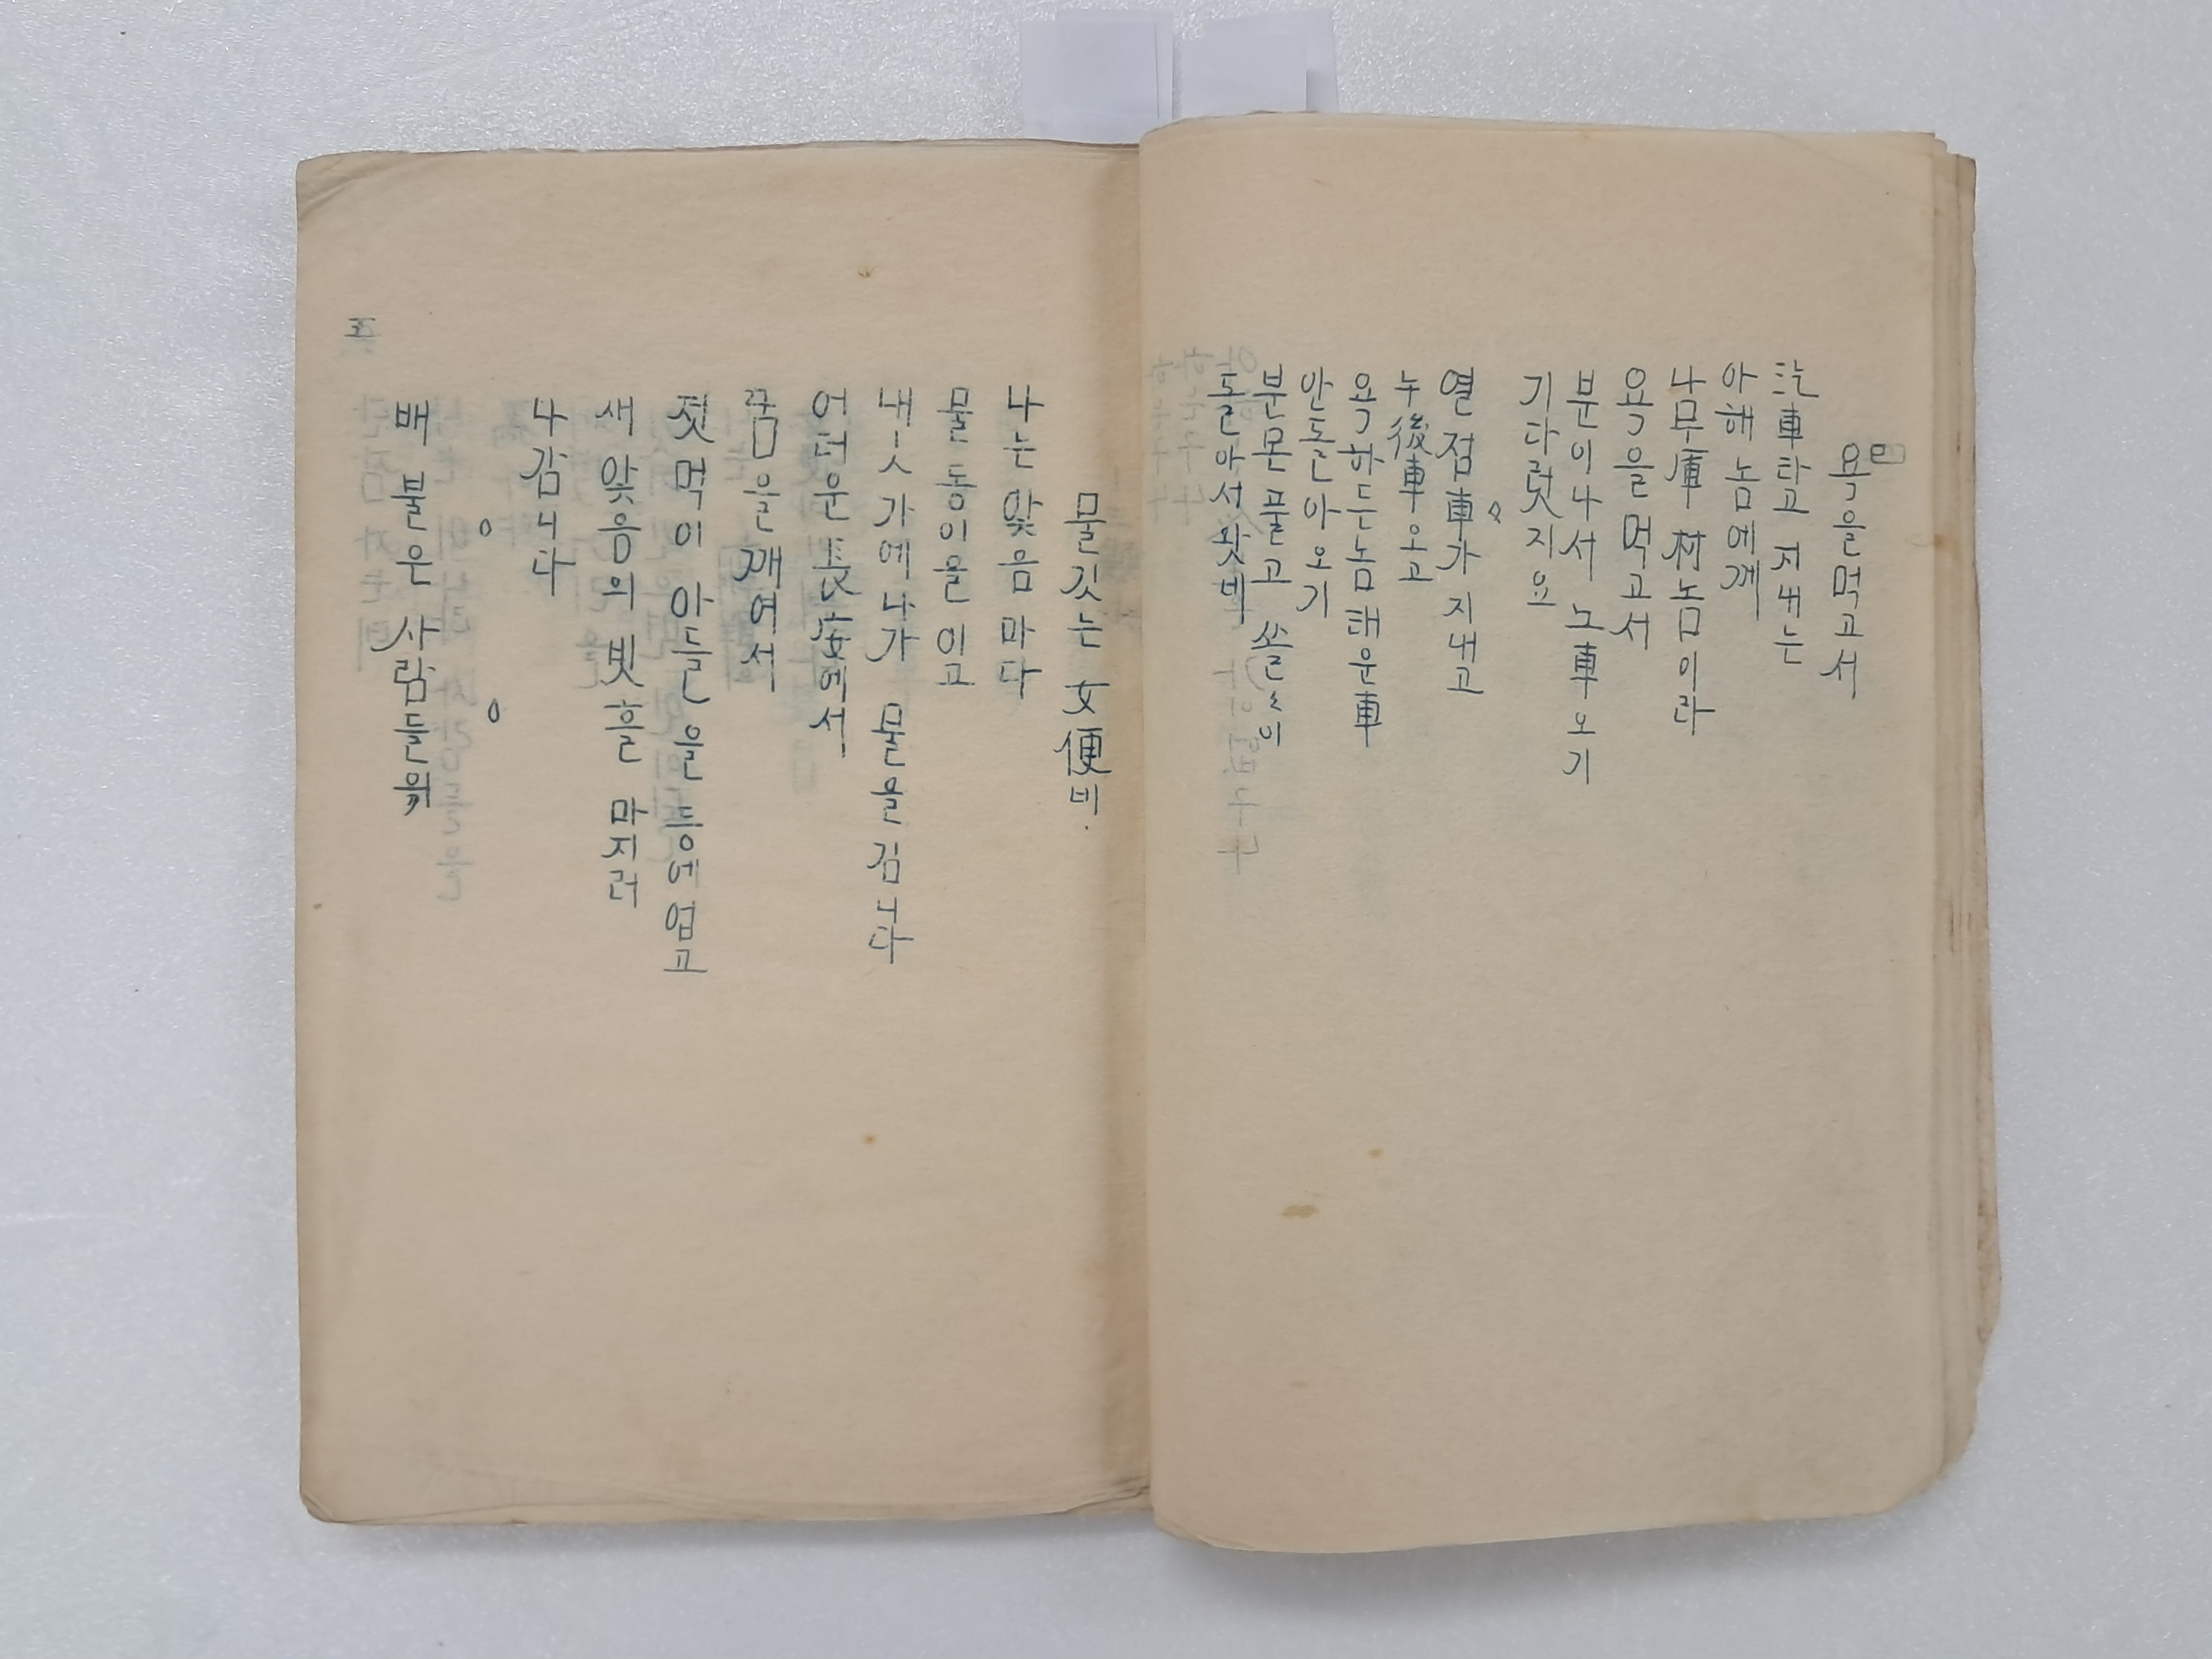 욕을먹고서
汽車타고 지내는
아해놈에게
나무庫 村놈이라
욕을먹고서
분이나서 노車오기
기다렷지요
열점車가 지내고
누後車오고
욕하든놈 태운車
안돌아오기
분몬풀고 쓸쓸이
돌아서왓네
물깃는 女便네.
나는 앛음마다
물동이을 이고
내ㅅ가에나가 물을깁니다
어더운 長安에서
꿈을깨여서
젓먹이 아들을 등에업고
새앛음의 빗흘 마지러
나감니다
배불은 사람들의
五